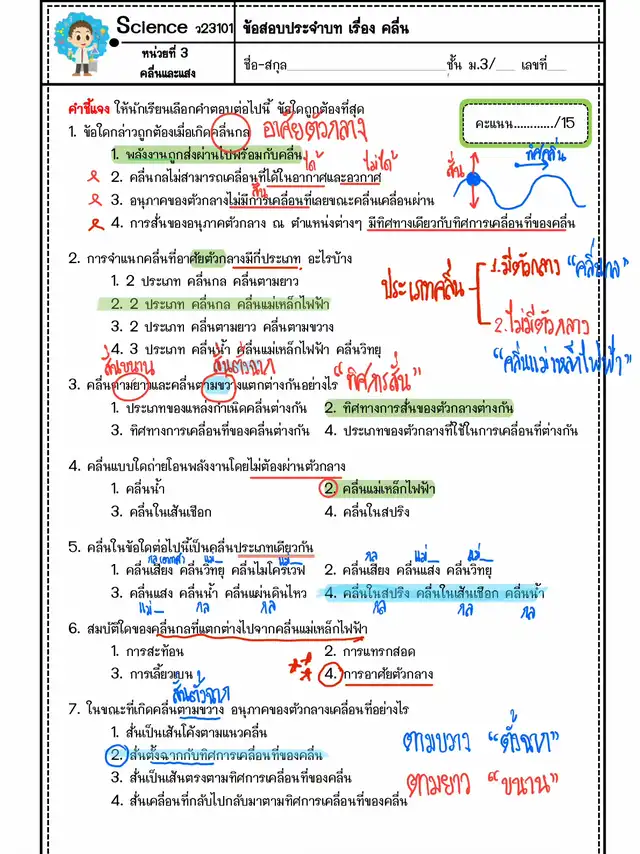 Science ว23101 ข้อสอบประจำบท เรื่อง คลื่น
หน่วยที่ 3
คลื่นและแสง
ชื่อ-สกุล ชั้น ม.3/ เลขที่
คำชี้แจง ให้นักเรียนเลือกคำตอบต่อไปนี้ ข้อใดถูกต้องที่สุด
คะแนน............/15
1. ข้อใดกล่าวถูกต้องเมื่อเกิดคลื่นกล อาศัยตัวกลาง
1. พลังงานถูกส่งผ่านไปพร้อมกับคลื่น
ได้ ไม่ได้
2. คลื่นกลไม่สามารถเคลื่อนที่ได้ในอากาศและอวกาศ
สั่น
3. อนุภาคของตัวกลางไม่มีการเคลื่อนที่เลยขณะคลื่นเคลื่อนผ่าน
4. การสั่นของอนุภาคตัวกลาง ณ ตำแหน่งต่างๆ มีทิศทางเดียวกับทิศการเคลื่อนที่ของคลื่น
สั่น ทิศคลื่น
2. การจำแนกคลื่นที่อาศัยตัวกลางมีกี่ประเภท อะไรบ้าง
1. 2 ประเภท คลื่นกล คลื่นตามยาว
2. 2 ประเภท คลื่นกล คลื่นแม่เหล็กไฟฟ้า
3. 2 ประเภท คลื่นตามยาว คลื่นตามขวาง
4. 3 ประเภท คลื่นน้ำ คลื่นแม่เหล็กไฟฟ้า คลื่นวิทยุ
ประเภทคลื่น
1. มีตัวกลาง "คลื่นกล"
2. ไม่มีตัวกลาง
"คลื่นแม่เหล็กไฟฟ้า"
สั่นขนาน สั่นตั้งฉาก
3. คลื่นตามยาวและคลื่นตามขวางแตกต่างกันอย่างไร "ทิศการสั่น"
1. ประเภทของแหล่งกำเนิดคลื่นต่างกัน 2. ทิศทางการสั่นของตัวกลางต่างกัน
3. ทิศทางการเคลื่อนที่ของคลื่นต่างกัน 4. ประเภทของตัวกลางที่ใช้ในการเคลื่อนที่ต่างกัน
4. คลื่นแบบใดถ่ายโอนพลังงานโดยไม่ต้องผ่านตัวกลาง
1. คลื่นน้ำ 2. คลื่นแม่เหล็กไฟฟ้า
3. คลื่นในเส้นเชือก 4. คลื่นในสปริง
5. คลื่นในข้อใดต่อไปนี้เป็นคลื่นประเภทเดียวกัน
กล แม่ แม่ กล แม่ แม่
1. คลื่นเสียง คลื่นวิทยุ คลื่นไมโครเวฟ 2. คลื่นเสียง คลื่นแสง คลื่นวิทยุ
3. คลื่นแสง คลื่นน้ำ คลื่นแผ่นดินไหว 4. คลื่นในสปริง คลื่นในเส้นเชือก คลื่นน้ำ
แม่ กล กล กล กล กล
6. สมบัติใดของคลื่นกลที่แตกต่างไปจากคลื่นแม่เหล็กไฟฟ้า
1. การสะท้อน 2. การแทรกสอด
3. การเลี้ยวเบน 4. การอาศัยตัวกลาง
สั่นตั้งฉาก
7. ในขณะที่เกิดคลื่นตามขวาง อนุภาคของตัวกลางเคลื่อนที่อย่างไร
1. สั่นเป็นเส้นโค้งตามแนวคลื่น
2. สั่นตั้งฉากกับทิศการเคลื่อนที่ของคลื่น
3. สั่นเป็นเส้นตรงตามทิศการเคลื่อนที่ของคลื่น
4. สั่นเคลื่อนที่กลับไปกลับมาตามทิศการเคลื่อนที่ของคลื่น
ตามขวาง "ตั้งฉาก"
ตามยาว "ขนาน"